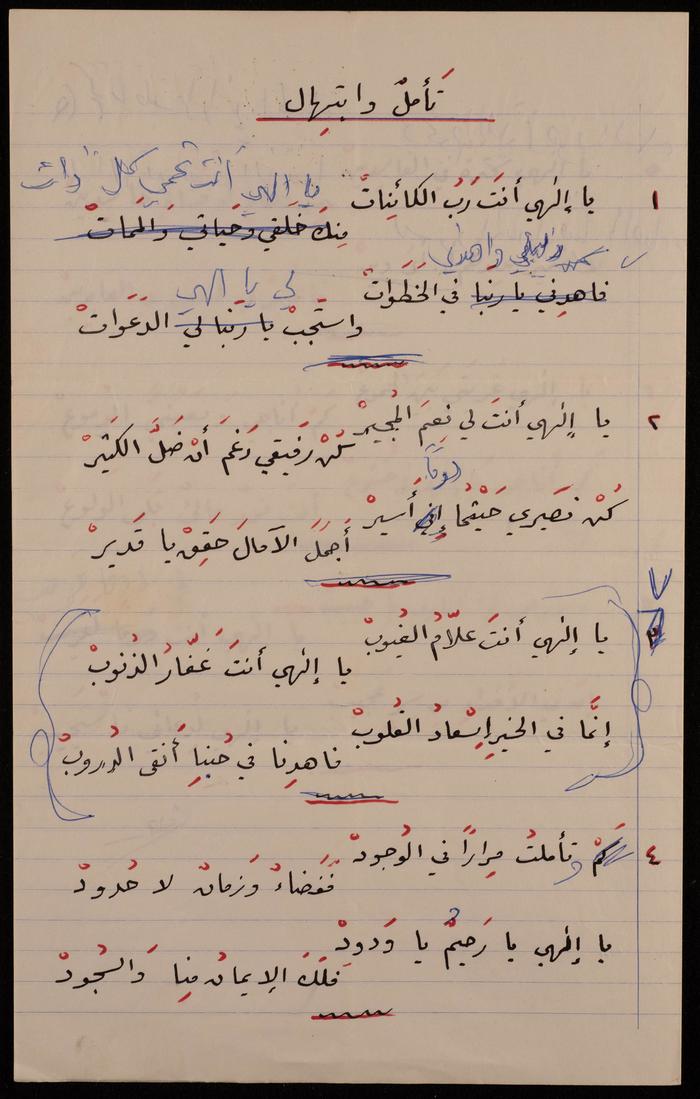 تأملٌ وابتهال
يا إلهي أنت تحمي كل ذات
١ يا إلهي أنتَ رَبُّ الكائِناتْ
مِنكَ خلقي وَحياتي والمماتْ
واهدني
فاهدِني يا ربَّنا في الخطَواتْ
لي يا الهي
واستَجبْ يا ربَّنا لي الدعَواتْ
٢ يا إلهي أنتَ لي نِعمَ المُجيرْ
كُنْ رَفيقي رَغمَ أنْ ضَلَّ الكثيرْ
دوماً
كُنْ نَصيري حَيْثُما إني أسيرْ
أجملَ الآمالَ حَقِقْ يا قَديرْ
٣ يا إلهي أنتَ علّامُ الغيُوبْ
يا إلهي أنتَ غَفّارُ الذنوبْ
إنَّما في الخيرِ إسْعادُ القلوبْ
فاهدِنا في حُبِنا أنقى الدروبْ
٤ كَمْ تأملتُ مِراراً في الوُجودْ
فَفَضاءٌ وَزمانٌ لا حُدودْ
يا إلهي يا رَحيمٌ يا وَدودْ
فلَكَ الإيمانُ مِنا وَالسُجودْ